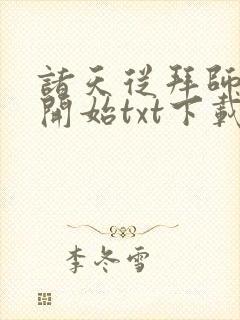 諸天從拜師
開始txt下載
李冬雪